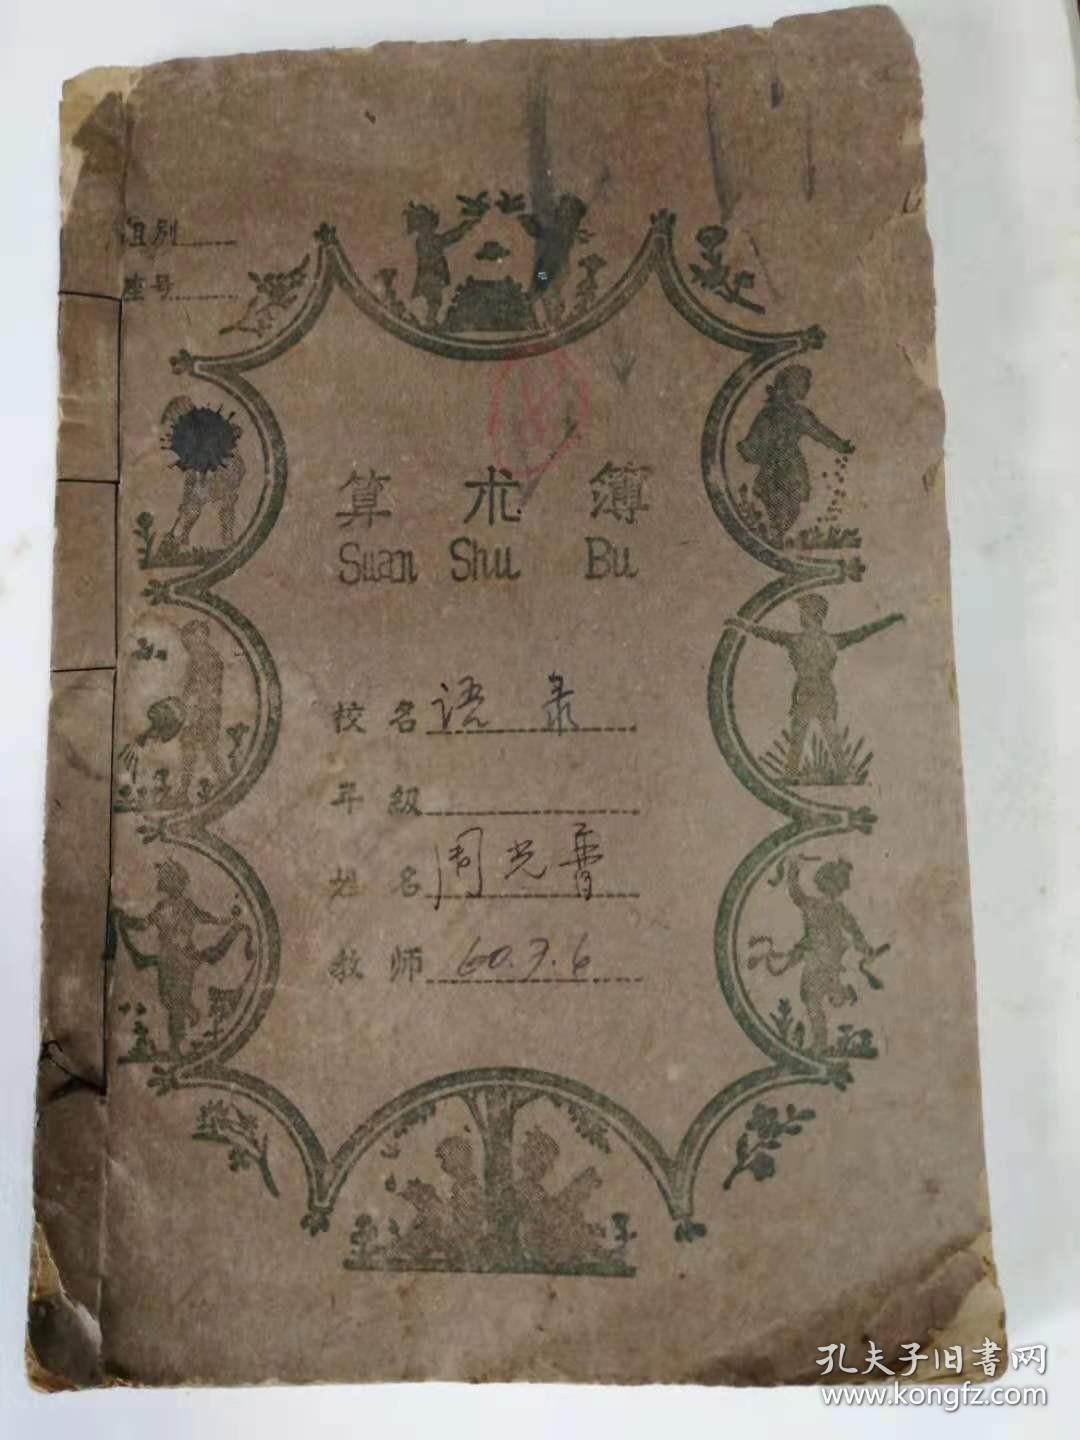 组别
座号
算术簿
Suan Shu Bu
校名 语录
年级
姓名 周光
教师 60.7.6
孔夫子旧書网
www.kongfz.com